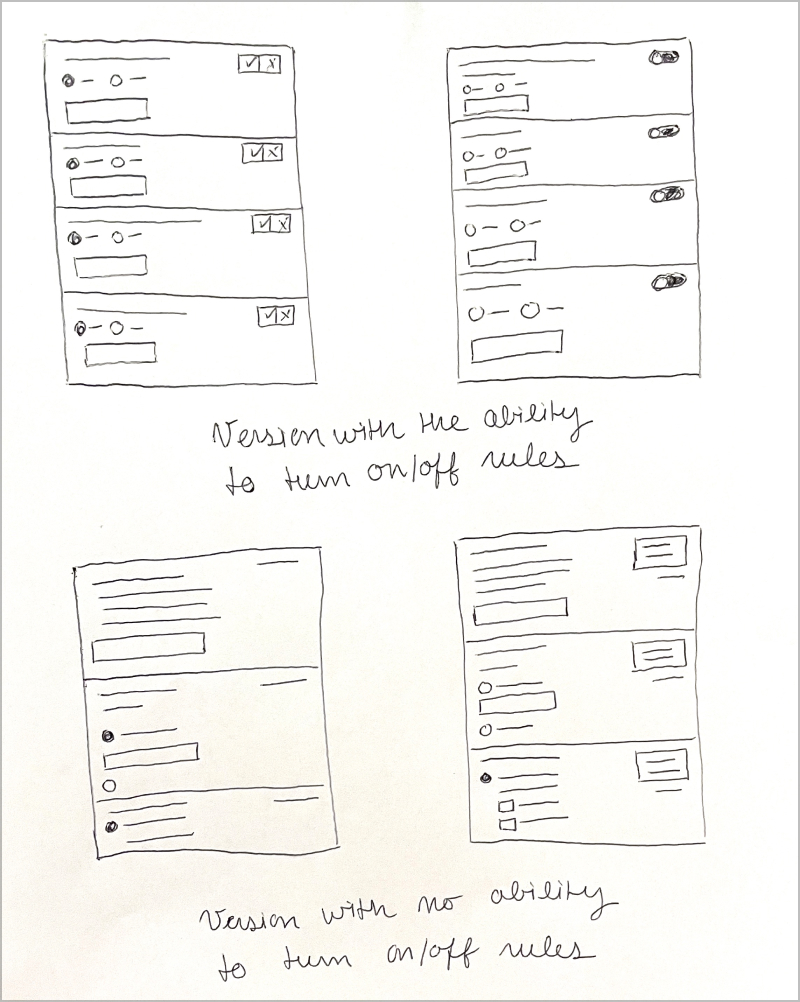 Version with the ability
to turn on/off rules
Version with no ability
to turn on/off rules